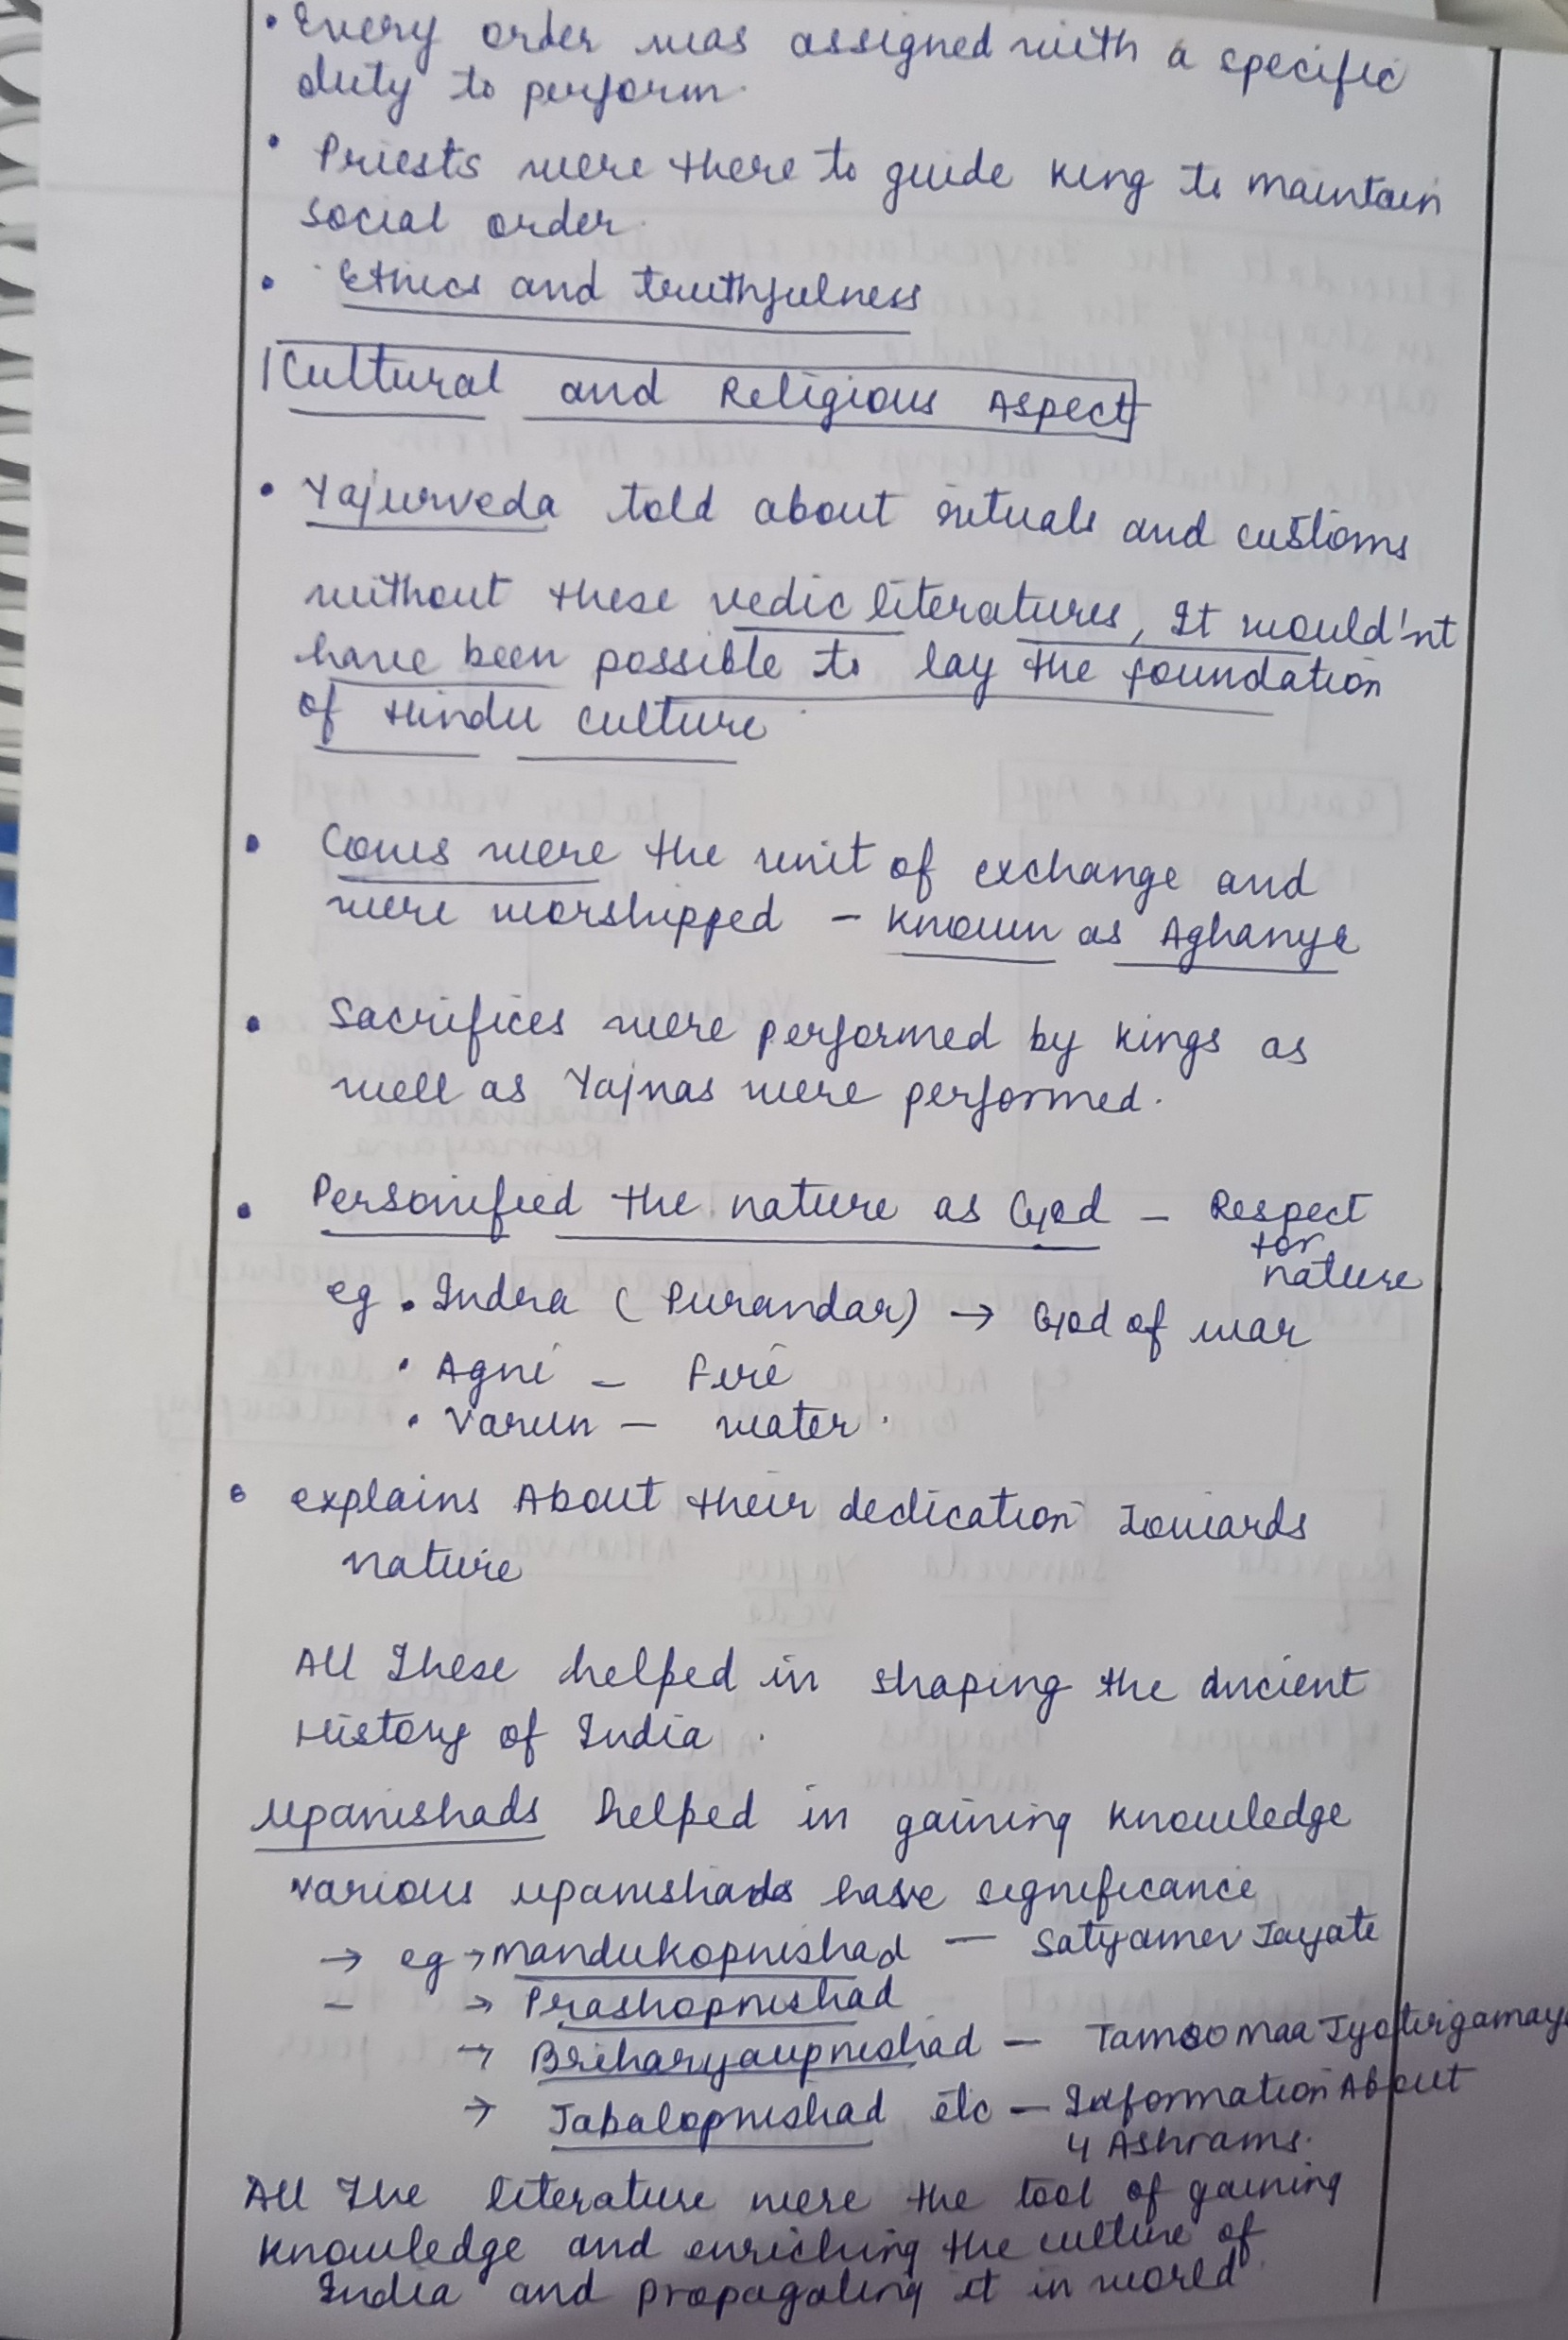 • Every order was assigned with a specific
duty to perform.
• Priests were there to guide king to maintain
social order.
• Ethics and truthfulness
Cultural and Religious Aspect
• Yajurveda told about rituals and customs
without these vedic literatures, It would'nt
have been possible to lay the foundation
of Hindu culture.
• Cows were the unit of exchange and
were worshipped – known as Aghanya
• Sacrifices were performed by kings as
well as Yajnas were performed.
• Personified the nature as God – Respect
for
nature
eg • Indra (Purandar) → God of war
• Agni – Fire
• Varun – water.
• explains About their dedication Towards
nature
All These helped in shaping the ancient
History of India.
Upanishads helped in gaining knowledge
various upanishads have significance
→ eg → Mandukopnishad – Satyamev Jayate
– → Prashopnishad
→ Briharyaupnishad – Tamso maa Jyotirgamaya
→ Jabalopnishad etc – Information About
4 Ashrams.
All The literature were the tool of gaining
knowledge and enriching the culture of
India and propagating it in world.